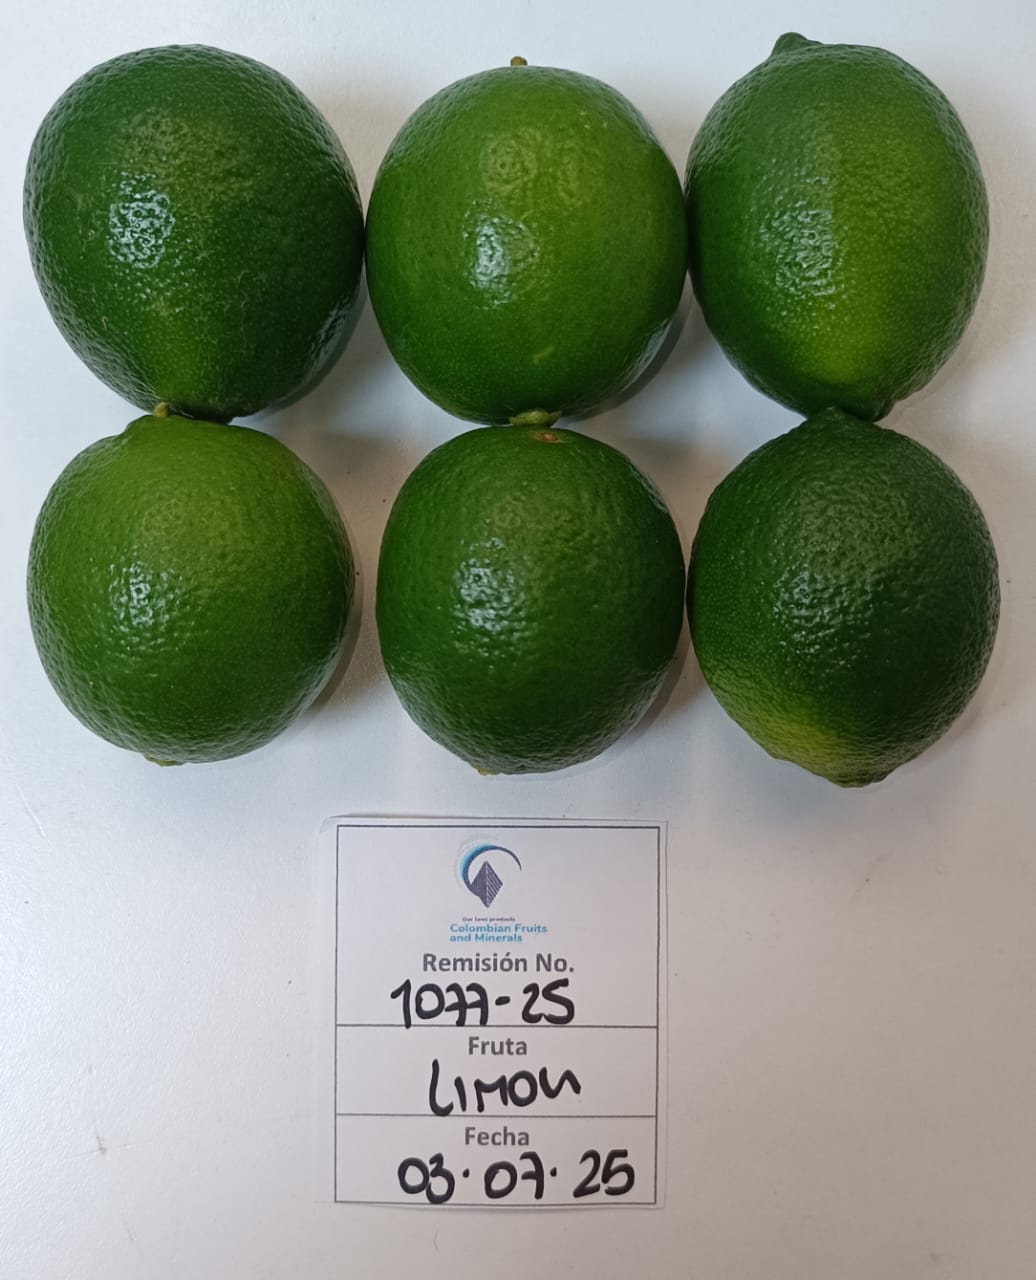 Our best products
Colombian Fruits
and Minerals
Remisión No.
1077-25
Fruta
LIMON
Fecha
03.07.25